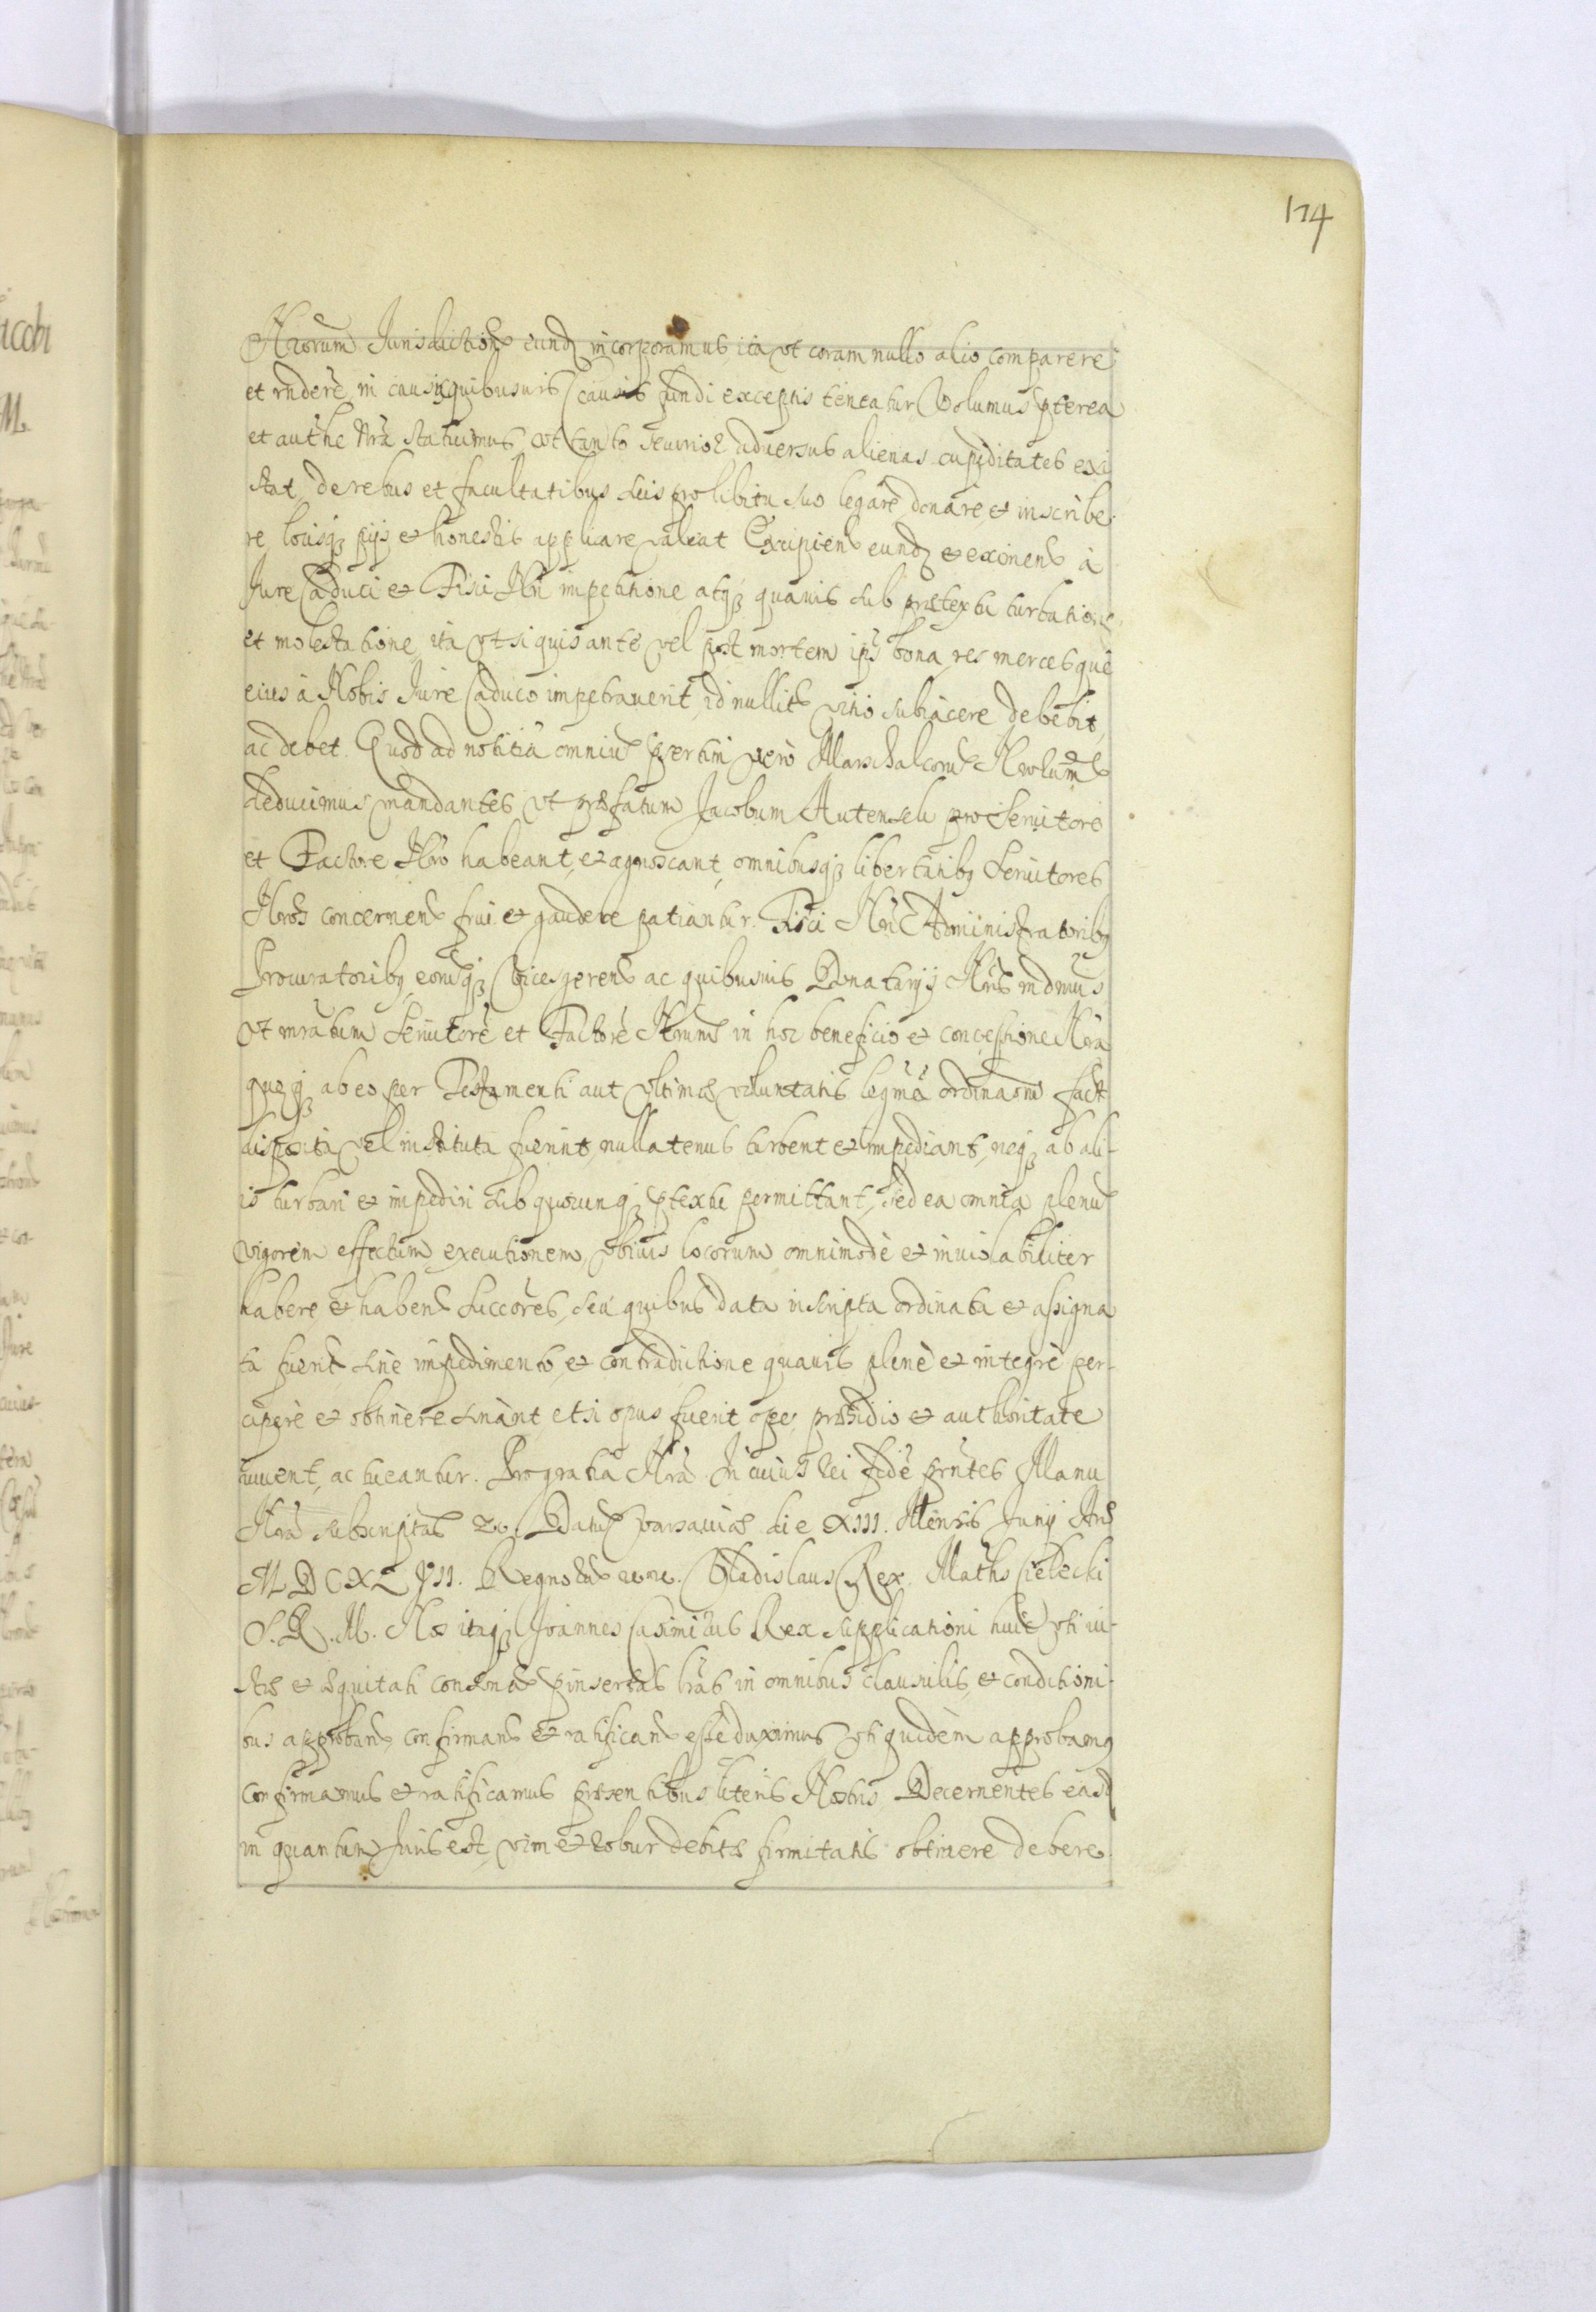 174
Nrorum Jurisdictioni eundē incorporamus, ita vt coram nullo alio comparere
et rndere, in causis quibusuis (causis fundi exceptis teneatur, Volumus pterea
et authe Nrã statuimus, vt tanto securior aduersus alienas cupiditates exi
stat, de rebus et facultatibus suis pro libitu suo legare donare et inscribe
re locisq, pijs et honestis appliare valeat Excipien eundē et eximen à
Jure Caduci et Fisci Nri impetitione atq, quauis sub prætextu turbatione
et molestatione, ita vt si quis ante vel post mortem ipsi bona res mercesque
eius à Nobis Jure Caduco impetrauerit, id nullit vitio subiacere debebit,
ac debet. Quod ad notitiã omniū pertim vero Marschalcorū
deducimus mandantes vt præfatum Jacobum pro Seruitore
et Factore Nro habeant, et agnoscant, omnibusq, libertatibq Seruitores
Nros concernen frui et gaudere patiantur. Fisci Nri Administratoribq
Procuratoribq, eorūq, vicesgeren ac quibusuis Donatarijs Nris mdmus
vt mratum Seruitorē et Factorē Nrum in hoc beneficio et concessione Nra
quæq, ab eo per Testamenti aut vltimæ voluntatis legmã ordinaom fact
disposita vel instituta fuerint, nullatenus turbent et impediant, neq, ab ali-
is turbari et impediri sub quocunq, ptextu permittant, Sed ea omnia plenū
vigorem effectum, executionem, vbiuis locorum omnimodè et inuiolabiliter
habere et haben Succores, seu quibus data inscripta ordinata et assigna
ta fuerit sine impedimento, et contradictione quauis plenè et integrè per-
cipere et obtinere sinant, et si opus fuerit ope, præsidio et authoritate
iuuent, ac tueantur. Pro gratia Nrã. In cuius rei fidē prntes Manu
Nrã subscriptas Datū Varsauiæ die XIII. Mensis Junij Ano
MDCXLVII. Regnorū Vladislaus Rex. Maths Cielecki
S. R. M. Nos itaq, Joannes Casimirus Rex supplicationi huic vti iu-
stæ et æquitati consonæ pinsertas lrãs in omnibus clausulis, et conditioni-
bus approban, confirman et ratifican esse duximus vti quidem approbamq
confirmamus et ratificamus præsentibus literis Nostris Decernentes easd
in quantum Juris est, vim et robur debitæ firmitatis obtinere debere.